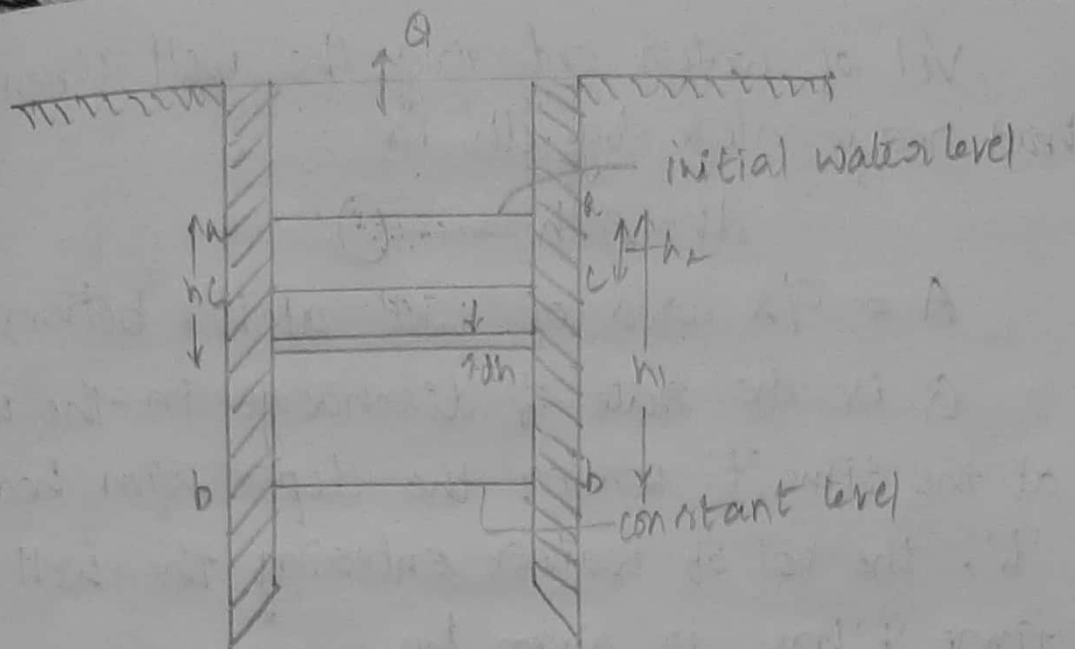 Q
initial water level
a
a
h2
c
h
c
dh
h1
b
b
constant level